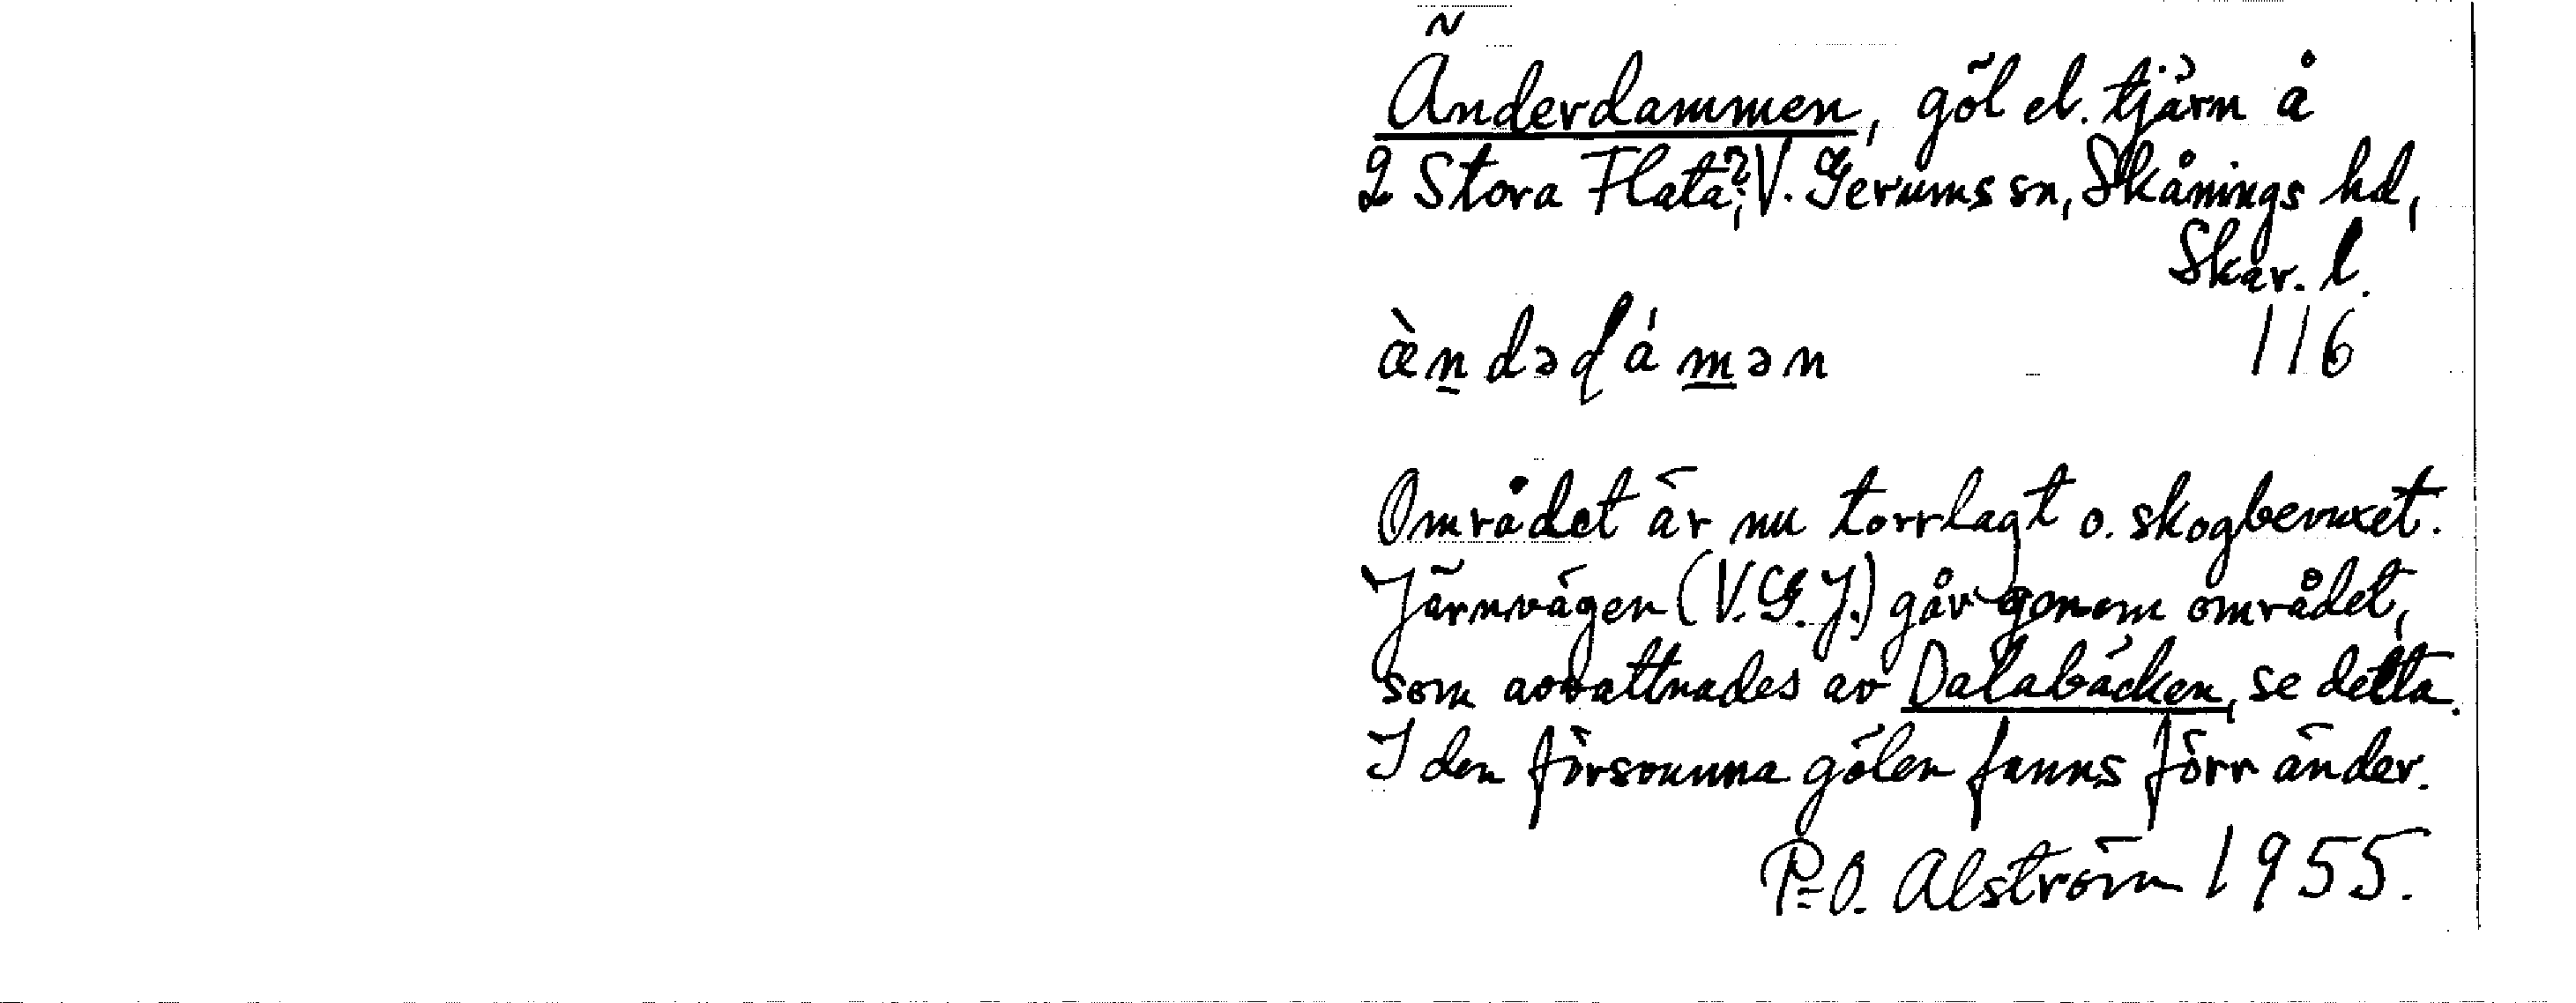 Änderdammen, göl el. tjärn å
2 Stora Flata?, V. Gerums sn, Skånings hd,
Skar. l.
æ̀n̲dəḍám̲ən 116
Området är nu torrlagt o. skogbevuxet.
Järnvägen (V.G.J.) går genom området,
som avvattnades av Dalabäcken, se detta.
I den försvunna gölen fanns förr änder.
P-O. Alström 1955.